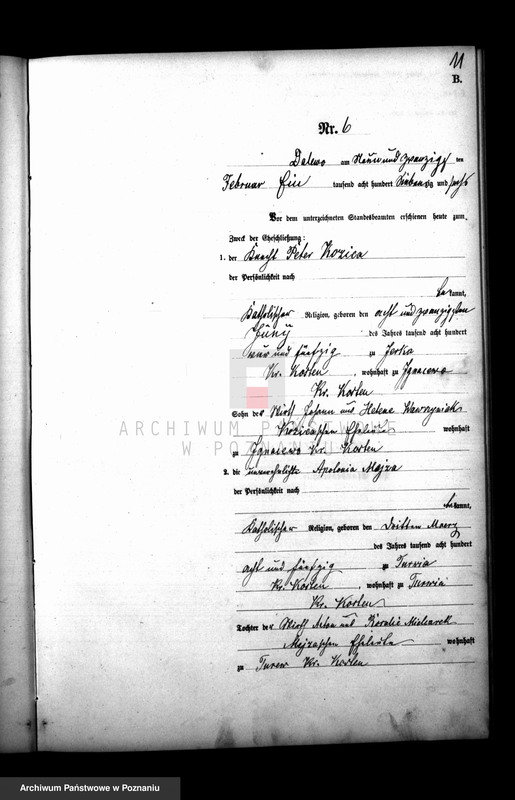 11
B.
Nr. 6
Dalewo am Neun und zwanzig ten
Februar Ein tausend acht hundert Siebenzig und sechs
Vor dem unterzeichneten Standesbeamten erschienen heute zum
Zweck der Eheschließung:
1. der Knecht Peter Kozica
der Persönlichkeit nach
be kannt,
Katholischer Religion, geboren den acht und zwanzigsten
Juny des Jahres tausend acht hundert
und fünfzig zu Jerka
Kr. Kosten, wohnhaft zu Ignacewo
Kr. Kosten
Sohn der Wirth Johann und Helene Wawrzyniak
Kozicaschen Eheleute wohnhaft
zu Ignacewo Kr. Kosten
2. die unverehelichte Apolonia Majza
der Persönlichkeit nach
be kannt,
Katholischer Religion, geboren den Dritten Maerz
des Jahres tausend acht hundert
acht und fünfzig zu Turwia
Kr. Kosten, wohnhaft zu Turwia
Kr. Kosten
Tochter der Wirth und Rosalie Mielcarek
Majzaschen Eheleute wohnhaft
zu Turew Kr. Kosten
ARCHIWUM PAŃSTWOWE
W POZNANIU
Archiwum Państwowe w Poznaniu